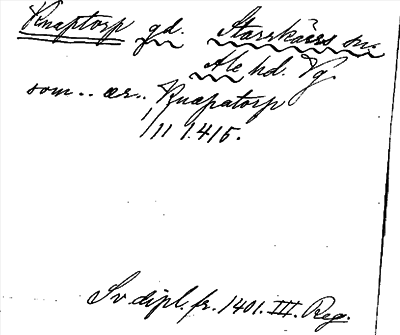 Knaptorp gd. Starrkärrs sn.
Ale hd. Vg
som .. ær .. Knapatorp
1/11 1415.
Sv dipl. fr. 1401. III. Reg.